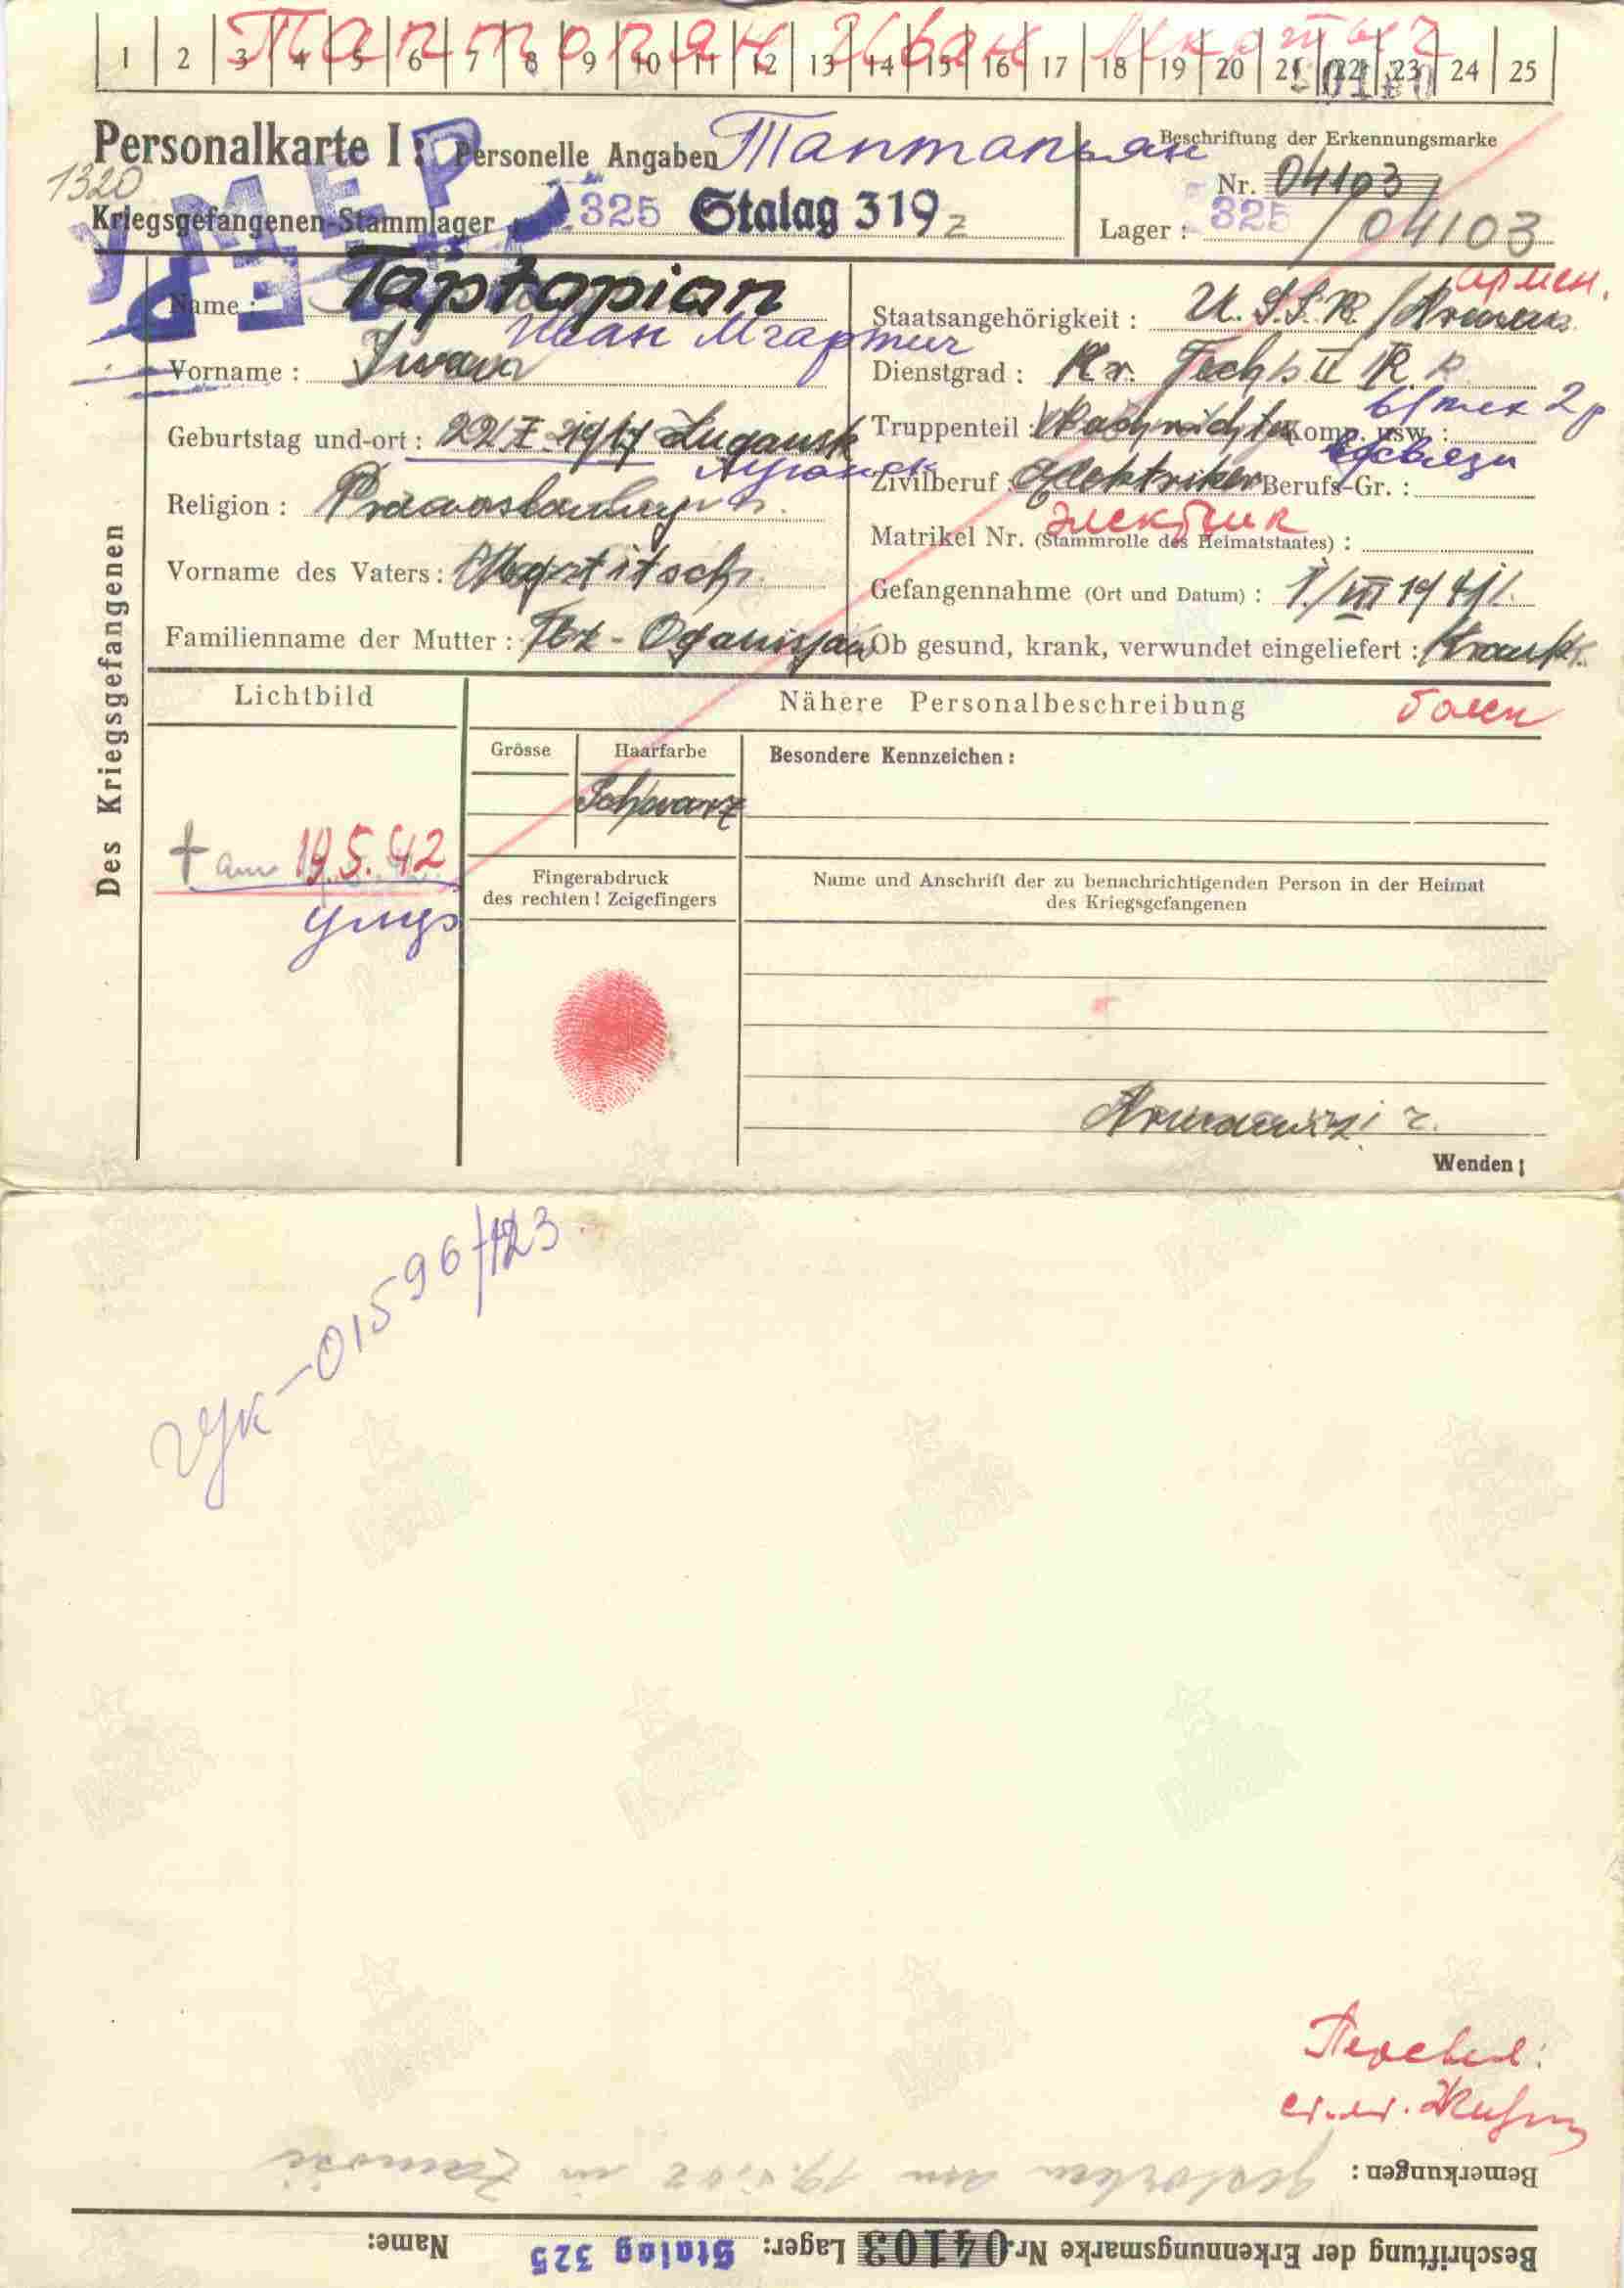 1 2 3 4 5 6 7 8 9 10 11 12 13 14 15 16 17 18 19 20 21 22 23 24 25
Таптопян Иван Мкртыч
Personalkarte I: Personelle Angaben Таптапьян
Beschriftung der Erkennungsmarke
1320
Nr. 04103
УМЕР
Kriegsgefangenen-Stammlager 325 Stalag 319 z
Lager: 325 / 04103
Des Kriegsgefangenen
Name: Taptopian
Иван Мгартич
Vorname: Iwan
Geburtstag und-ort: 22/I 1917 Lugansk
Луганск
Religion:
Vorname des Vaters: Mgrtitsch
Familienname der Mutter: Ter-Oganisjan
армен.
Staatsangehörigkeit: U.S.S.R./
Dienstgrad: Kr. Techn II R.
в/тех 2р
Truppenteil: Komp. usw.:
связи
Zivilberuf: Elektriker Berufs-Gr.:
электрик
Matrikel Nr. (Stammrolle des Heimatstaates):
Gefangennahme (Ort und Datum): 1./VIII 1941
Ob gesund, krank, verwundet eingeliefert: Krank
болен
Lichtbild
Nähere Personalbeschreibung
Grösse
Haarfarbe
Besondere Kennzeichen:
Schwarz
† am 19.5.42
умер
Fingerabdruck
des rechten! Zeigefingers
Name und Anschrift der zu benachrichtigenden Person in der Heimat
des Kriegsgefangenen
Wenden!
УК-01596/123
Перевел:
Bemerkungen: gestorben am 19.5.42 in Zamosc
Beschriftung der Erkennungsmarke Nr 04103 Lager: Stalag 325 Name: